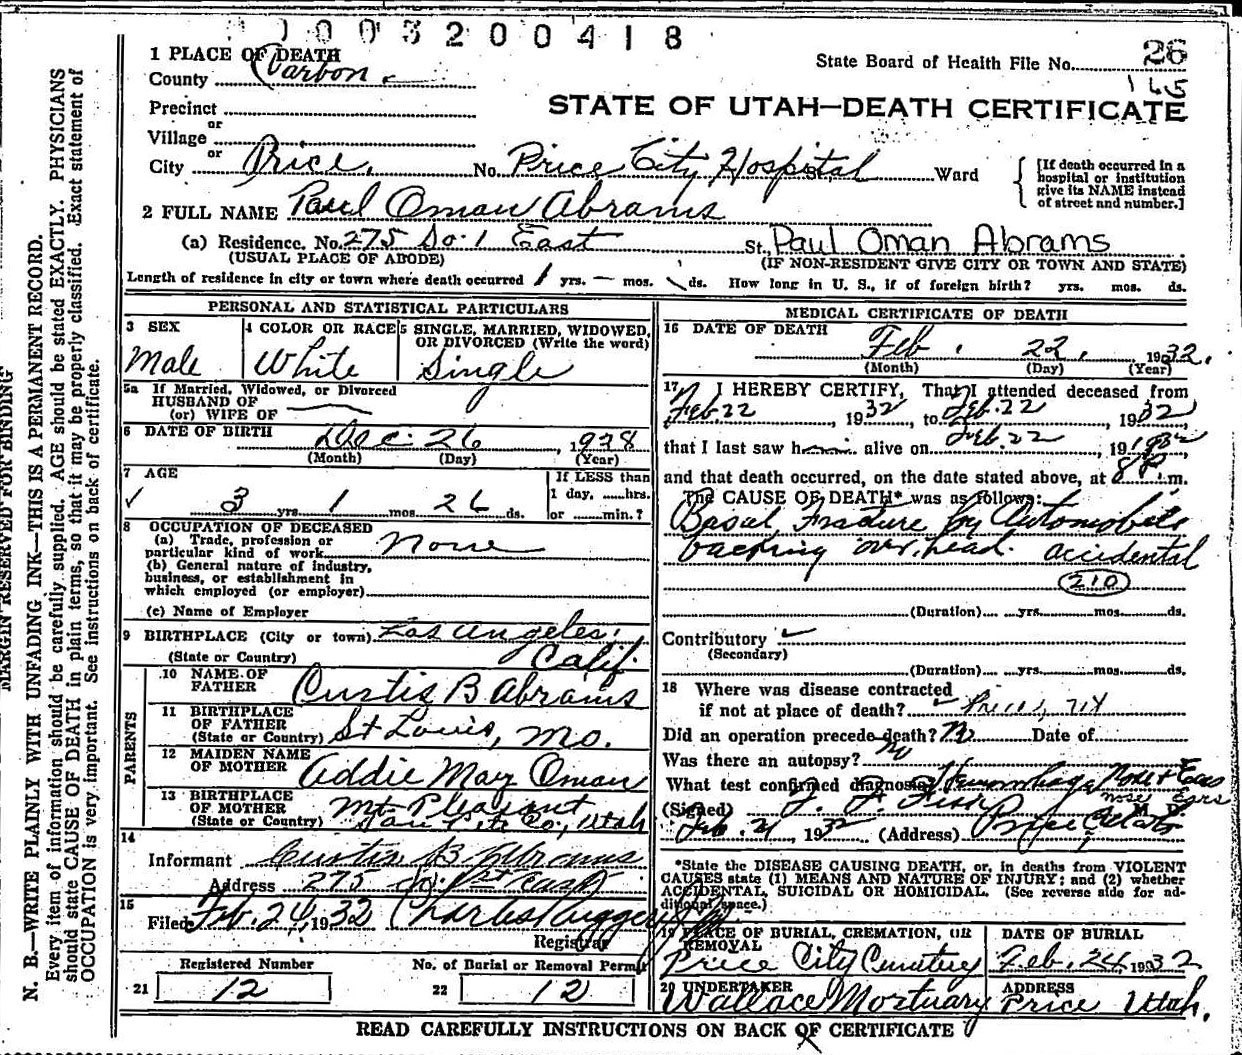 1003200418
1 PLACE OF DEATH
County Carbon
State Board of Health File No. 26
165
Precinct
or
Village
or
City Price, No. Price City Hospital Ward
STATE OF UTAH—DEATH CERTIFICATE
[If death occurred in a
hospital or institution
give its NAME instead
of street and number.]
2 FULL NAME Paul Oman Abrams
(a) Residence. No. 275 So. 1 East St., Paul Oman Abrams
(USUAL PLACE OF ABODE) (IF NON-RESIDENT GIVE CITY OR TOWN AND STATE)
Length of residence in city or town where death occurred 1 yrs. — mos. ds. How long in U. S., if of foreign birth? yrs. mos. ds.
PERSONAL AND STATISTICAL PARTICULARS
3 SEX
Male
4 COLOR OR RACE
White
5 SINGLE, MARRIED, WIDOWED,
OR DIVORCED (Write the word)
Single
5a If Married, Widowed, or Divorced
HUSBAND OF
(or) WIFE OF
6 DATE OF BIRTH Dec. 26, 1928
(Month) (Day) (Year)
7 AGE
3 yrs. 1 mos. 26 ds.
If LESS than
1 day, ......hrs.
or ......min.?
8 OCCUPATION OF DECEASED
(a) Trade, profession or
particular kind of work None
(b) General nature of industry,
business, or establishment in
which employed (or employer)
(c) Name of Employer
9 BIRTHPLACE (City or town) Los Angeles,
(State or Country) Calif.
PARENTS
10 NAME OF
FATHER Curtis B Abrams
11 BIRTHPLACE
OF FATHER
(State or Country) St Louis, Mo.
12 MAIDEN NAME
OF MOTHER Addie May Oman
13 BIRTHPLACE
OF MOTHER Mt Pleasant
(State or Country) San Pete Co., Utah
14
Informant Curtis B Abrams
Address 275 So. 1st East
15
Filed Feb. 24, 1932 Charles Ruggeri
Registrar
Registered Number
21 12
No. of Burial or Removal Permit
22 12
MEDICAL CERTIFICATE OF DEATH
16 DATE OF DEATH
Feb. 22, 1932.
(Month) (Day) (Year)
17 I HEREBY CERTIFY, That I attended deceased from
Feb. 22, 1932, to Feb. 22, 1932
that I last saw him alive on Feb. 22, 1932
and that death occurred, on the date stated above, at 8 P. m.
The CAUSE OF DEATH* was as follows:
Basal Fracture by Automobile
backing over head. accidental
210
(Duration) yrs. mos. ds.
Contributory
(Secondary)
(Duration) yrs. mos. ds.
18 Where was disease contracted
if not at place of death? Price, Ut
Did an operation precede death? No Date of
Was there an autopsy? No
What test confirmed diagnosis? Hemorrhage Nose & Ears
nose Ears
(Signed) M. D.
Feb. 1932 (Address) Price Utah
*State the DISEASE CAUSING DEATH, or, in deaths from VIOLENT
CAUSES state (1) MEANS AND NATURE OF INJURY; and (2) whether
ACCIDENTAL, SUICIDAL OR HOMICIDAL. (See reverse side for ad-
ditional space.)
19 PLACE OF BURIAL, CREMATION, OR
REMOVAL
Price City Cemetery
DATE OF BURIAL
Feb. 24 1932
20 UNDERTAKER
Wallace Mortuary
ADDRESS
Price Utah.
READ CAREFULLY INSTRUCTIONS ON BACK OF CERTIFICATE
MARGIN RESERVED FOR BINDING
N. B.—WRITE PLAINLY WITH UNFADING INK—THIS IS A PERMANENT RECORD.
Every item of information should be carefully supplied. AGE should be stated EXACTLY. PHYSICIANS
should state CAUSE OF DEATH in plain terms, so that it may be properly classified. Exact statement of
OCCUPATION is very important. See instructions on back of certificate.